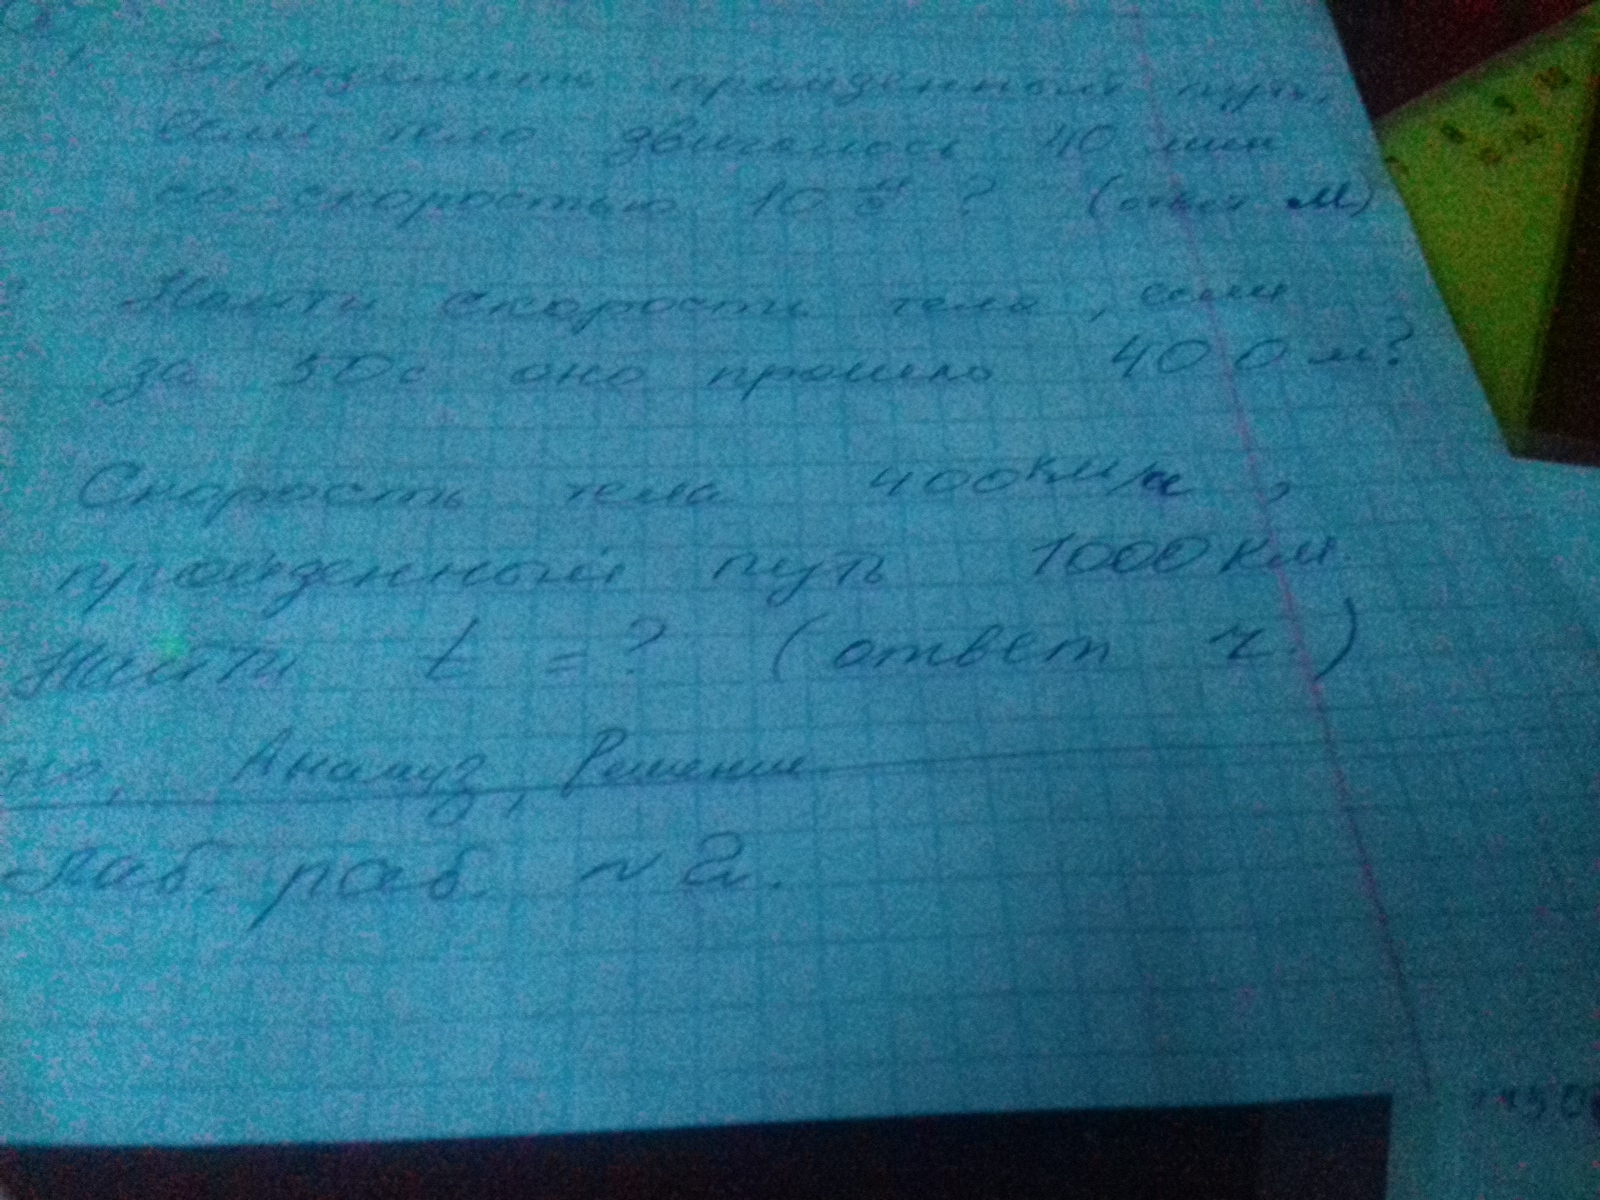 1 Определить пройденный путь,
если тело двигалось 40 мин
со скоростью 10 м/с ? (ответ м)
Найти скорость тела, если
за 50с оно прошло 400 м?
Скорость тела 400км/ч ,
пройденный путь 1000 км.
Найти t = ? (ответ ч.)
но, Анализ, Решение
Лаб. раб. №2.